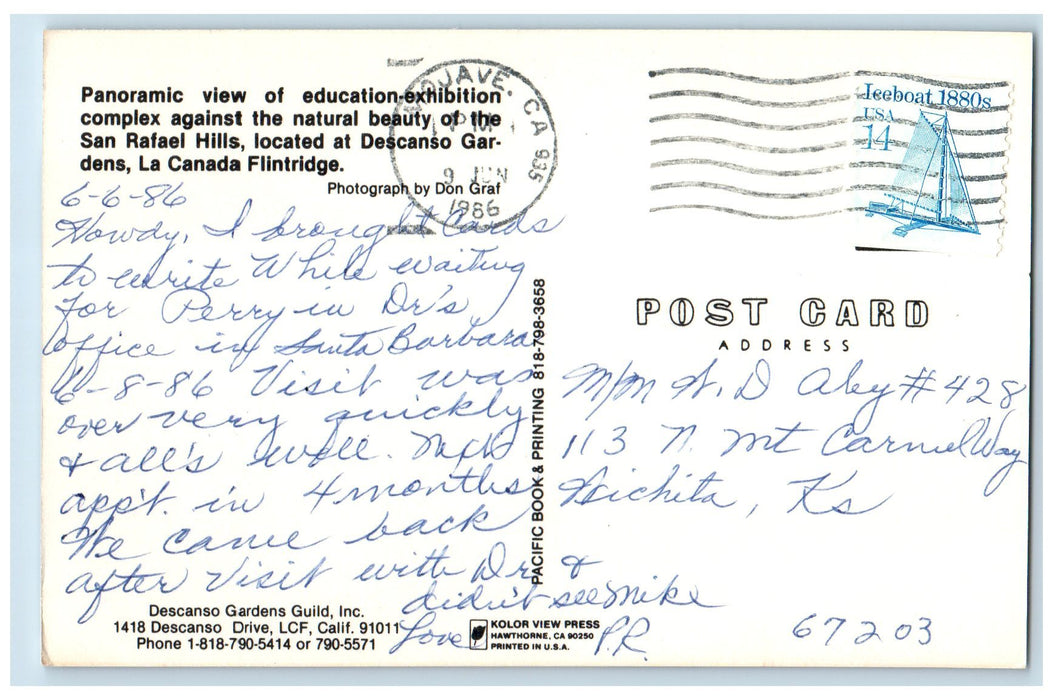 Panoramic view of education-exhibition
complex against the natural beauty of the
San Rafael Hills, located at Descanso Gar-
dens, La Canada Flintridge.
Photograph by Don Graf
MOJAVE, CA 935
PM
9 JUN
1986
Iceboat 1880s
USA
14
6-6-86
Howdy, I brought Cards
to write While waiting
for Perry in Dr's
office in Santa Barbara
6-8-86 Visit was
over very quickly
& all's well. Next
appt. in 4 months
We came back
after Visit with Dr &
didn't see Mike
Love P.R.
PACIFIC BOOK & PRINTING 818-798-3658
POST CARD
ADDRESS
M/M W. D Aley #428
113 N. Mt Carmel Way
Wichita, Ks
67203
Descanso Gardens Guild, Inc.
1418 Descanso Drive, LCF, Calif. 91011
Phone 1-818-790-5414 or 790-5571
KOLOR VIEW PRESS
HAWTHORNE, CA 90250
PRINTED IN U.S.A.